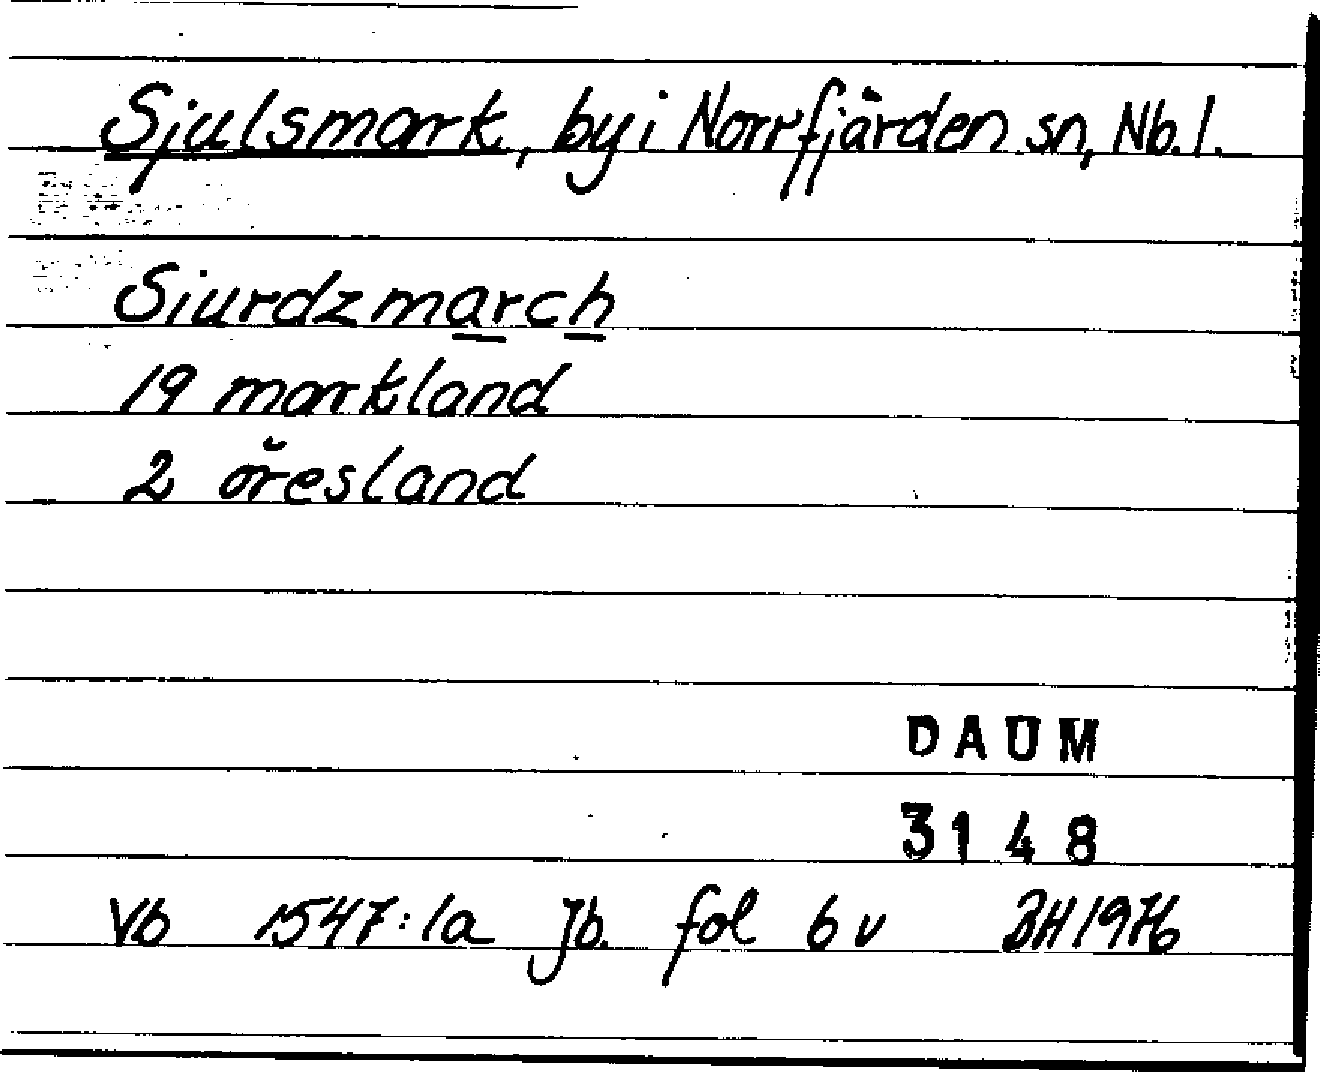 Sjulsmark, by i Norrfjärden sn, Nb. l.
Siurdzmarch
19 markland
2 öresland
DAUM
3148
Vb 1547:1a Jb. fol 6 v BH 1976